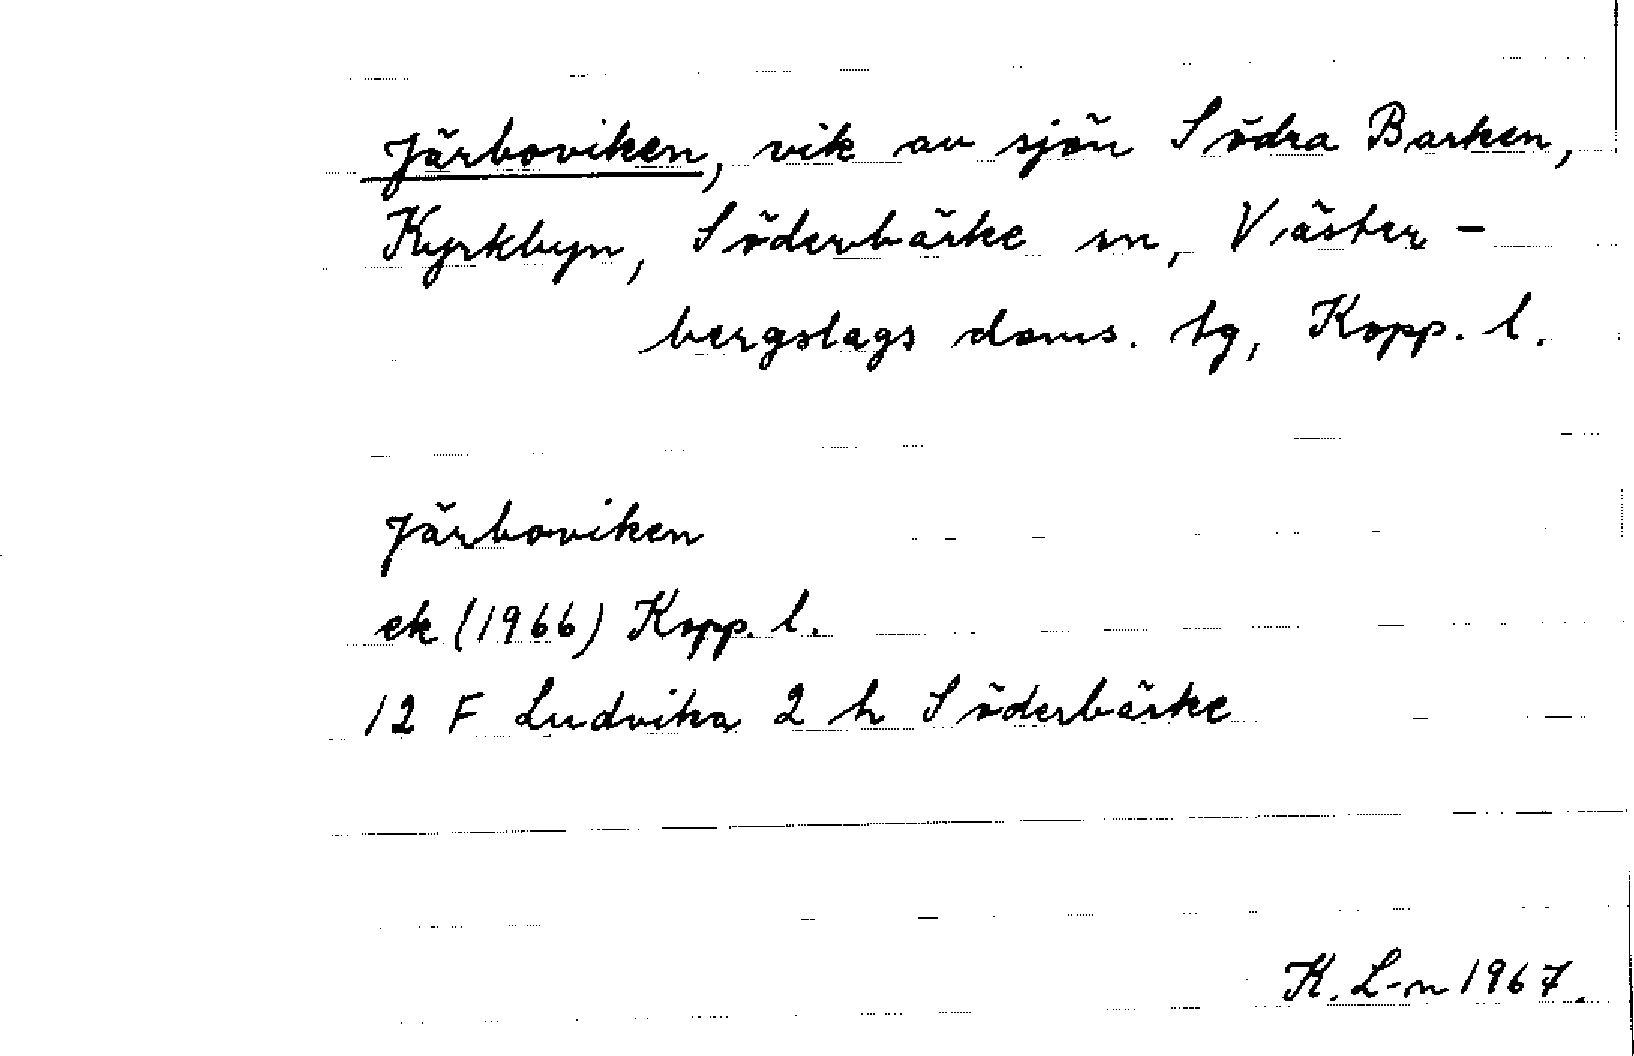 Järboviken, vik av sjön Södra Barken,
Kyrkbyn, Söderbärke sn, Väster-
bergslags doms. tg, Kopp. l.
Järboviken
ek (1966) Kopp. l.
12 F Ludvika 2 h Söderbärke
K. L-n 1967.